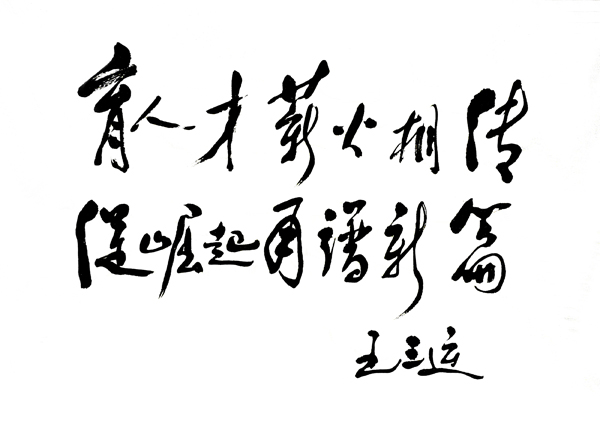 育人才薪火相传
促崛起再谱新篇
王三运